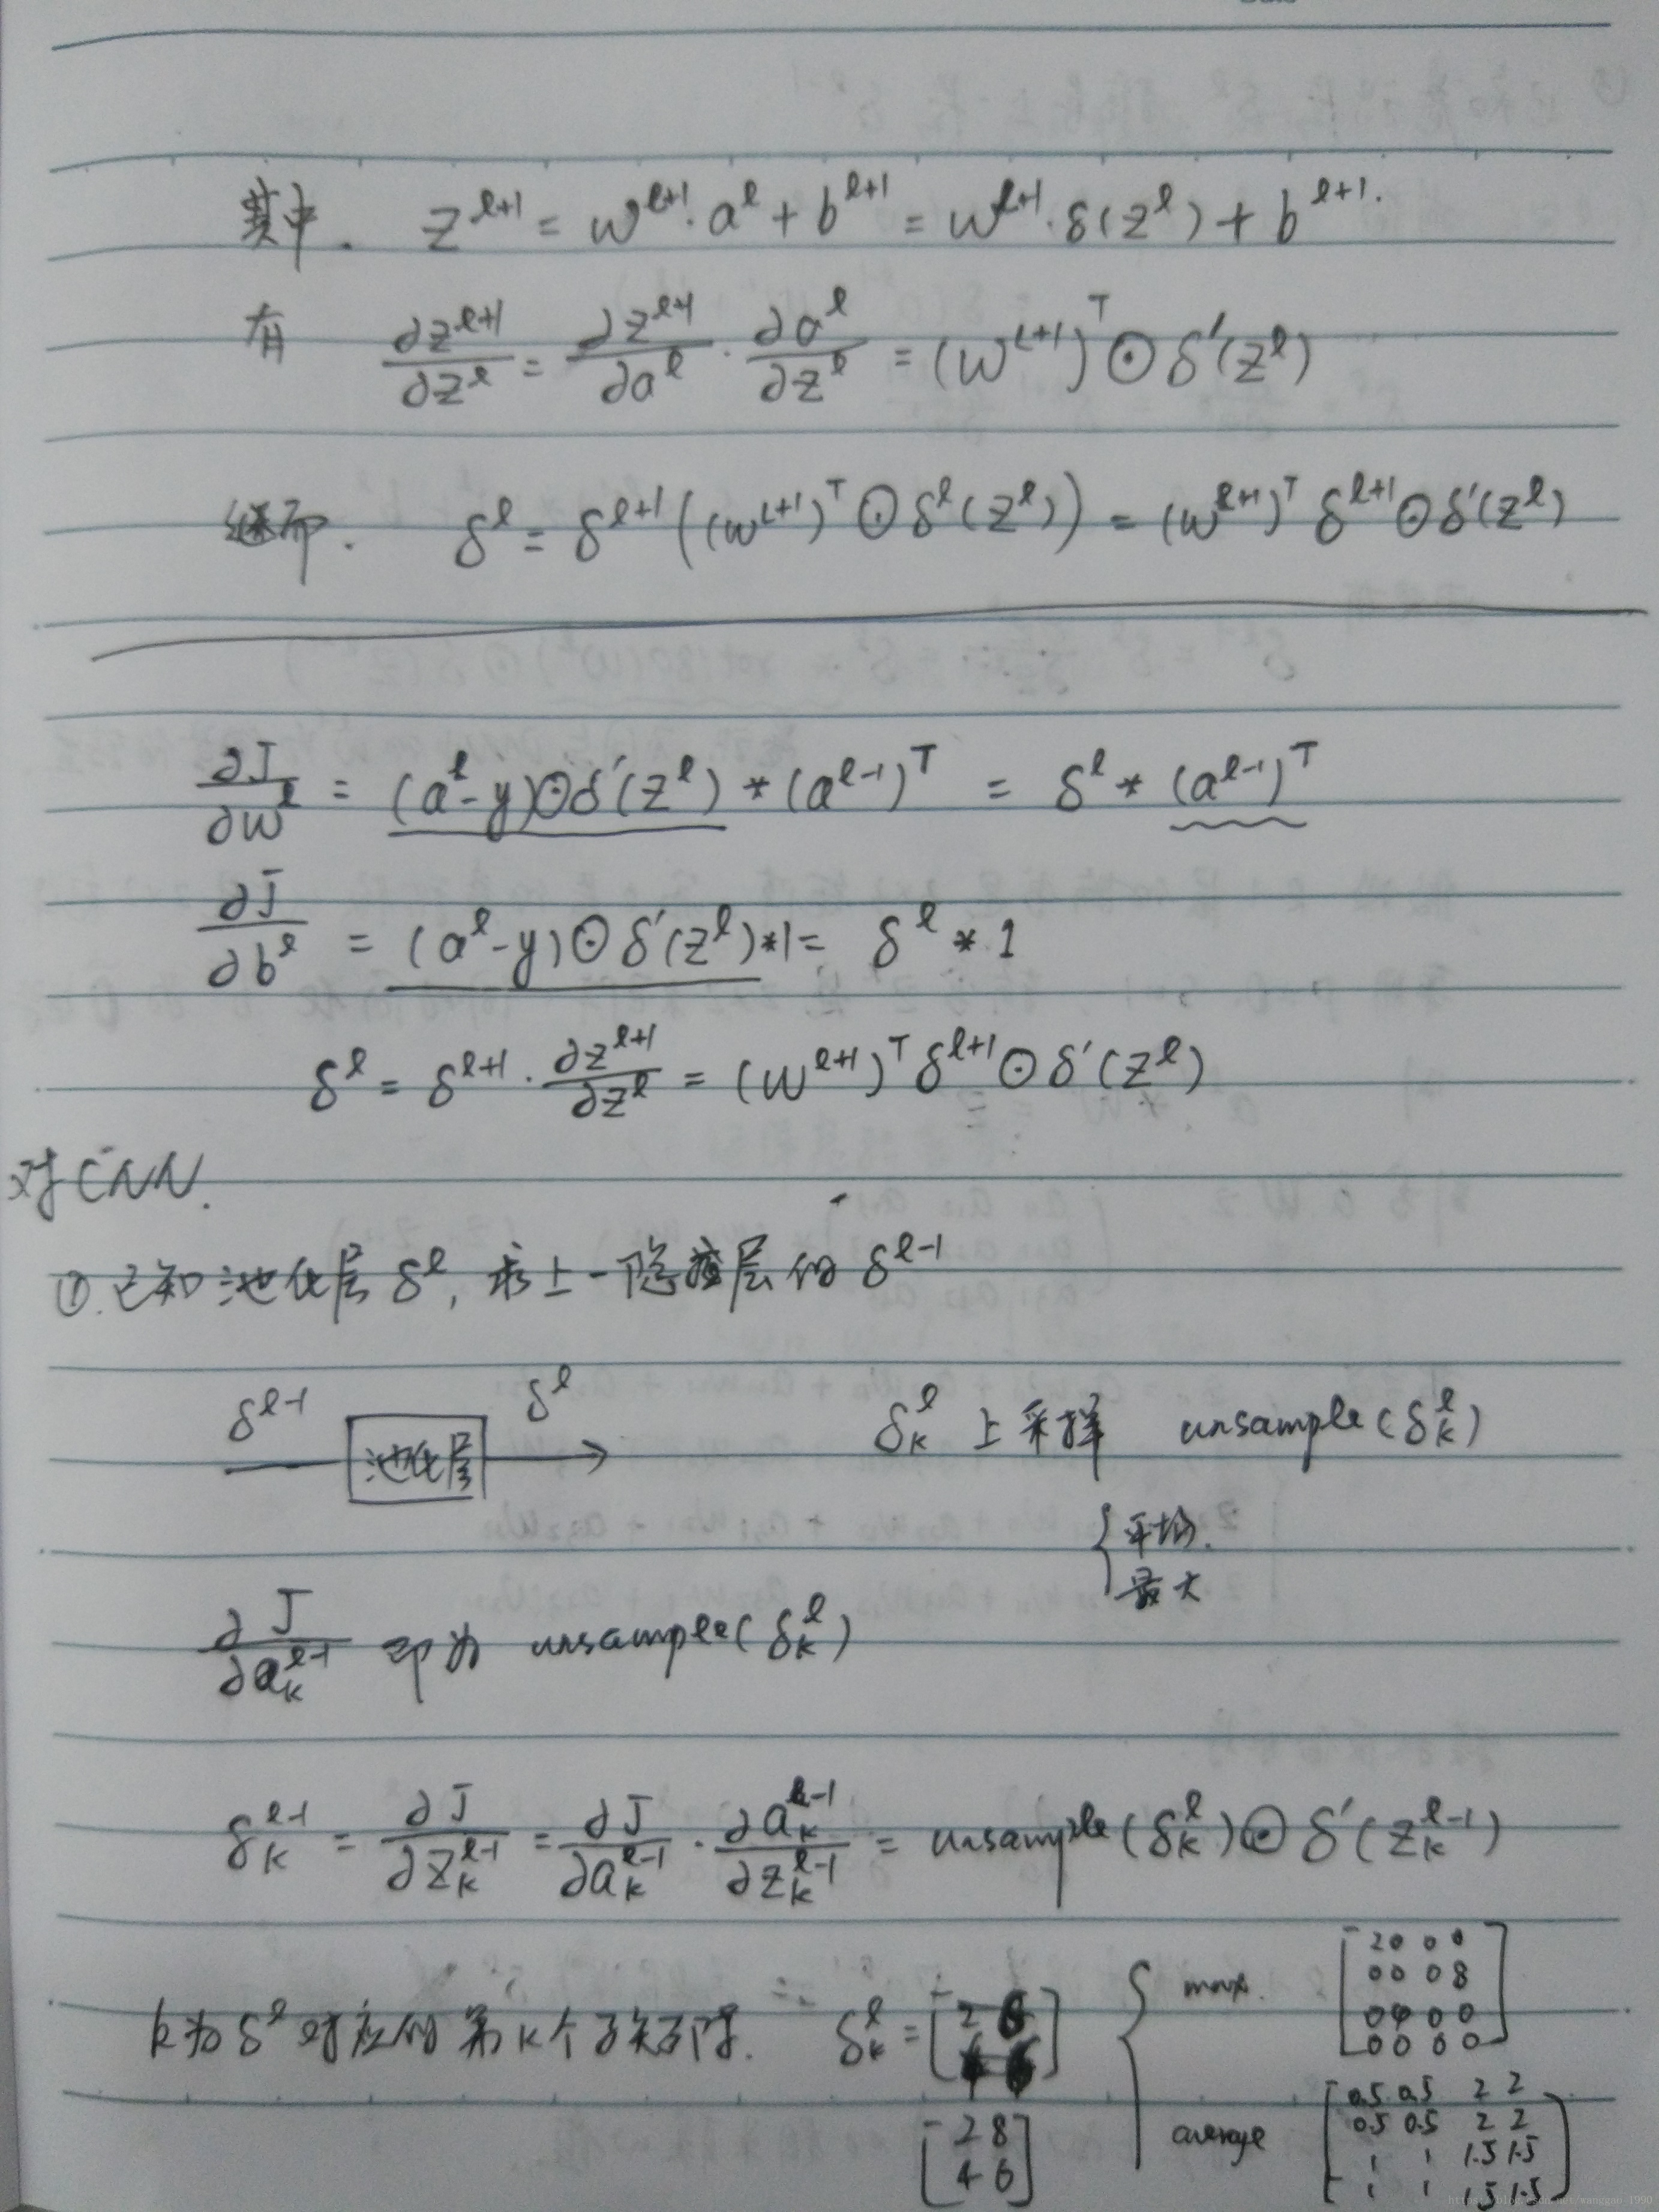 其中. z^{l+1} = w^{l+1}·a^l + b^{l+1} = w^{l+1}·δ(z^l) + b^{l+1}.
有 ∂z^{l+1}/∂z^l = ∂z^{l+1}/∂a^l · ∂a^l/∂z^l = (w^{l+1})^T ⊙ δ'(z^l)
继而. δ^l = δ^{l+1}((w^{l+1})^T ⊙ δ^l(z^l)) = (w^{l+1})^T δ^{l+1} ⊙ δ'(z^l)
∂J/∂w^l = (a^l-y)⊙δ'(z^l) * (a^{l-1})^T = δ^l * (a^{l-1})^T
∂J/∂b^l = (a^l-y)⊙δ'(z^l)*1 = δ^l * 1
δ^l = δ^{l+1} · ∂z^{l+1}/∂z^l = (w^{l+1})^T δ^{l+1} ⊙ δ'(z^l)
对CNN.
①.已知池化层δ^l, 求上一隐藏层的δ^{l-1}
δ^{l-1} 池化层 δ^l
δ_k^l 上采样 unsample(δ_k^l)
平均.
最大
∂J/∂a_k^{l-1} 即为 unsample(δ_k^l)
δ_k^{l-1} = ∂J/∂z_k^{l-1} = ∂J/∂a_k^{l-1} · ∂a_k^{l-1}/∂z_k^{l-1} = unsample(δ_k^l)⊙δ'(z_k^{l-1})
k为δ^l对应的第k个子矩阵. δ_k^l =
2 8
4 6
max.
2 0 0 0
0 0 0 8
0 4 0 0
0 0 0 0
average
0.5 0.5 2 2
0.5 0.5 2 2
1 1 1.5 1.5
1 1 1.5 1.5